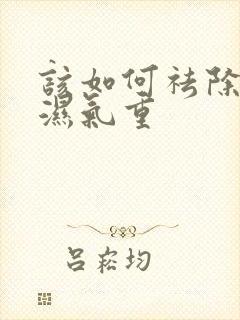 該如何祛除
濕氣重
呂崧均